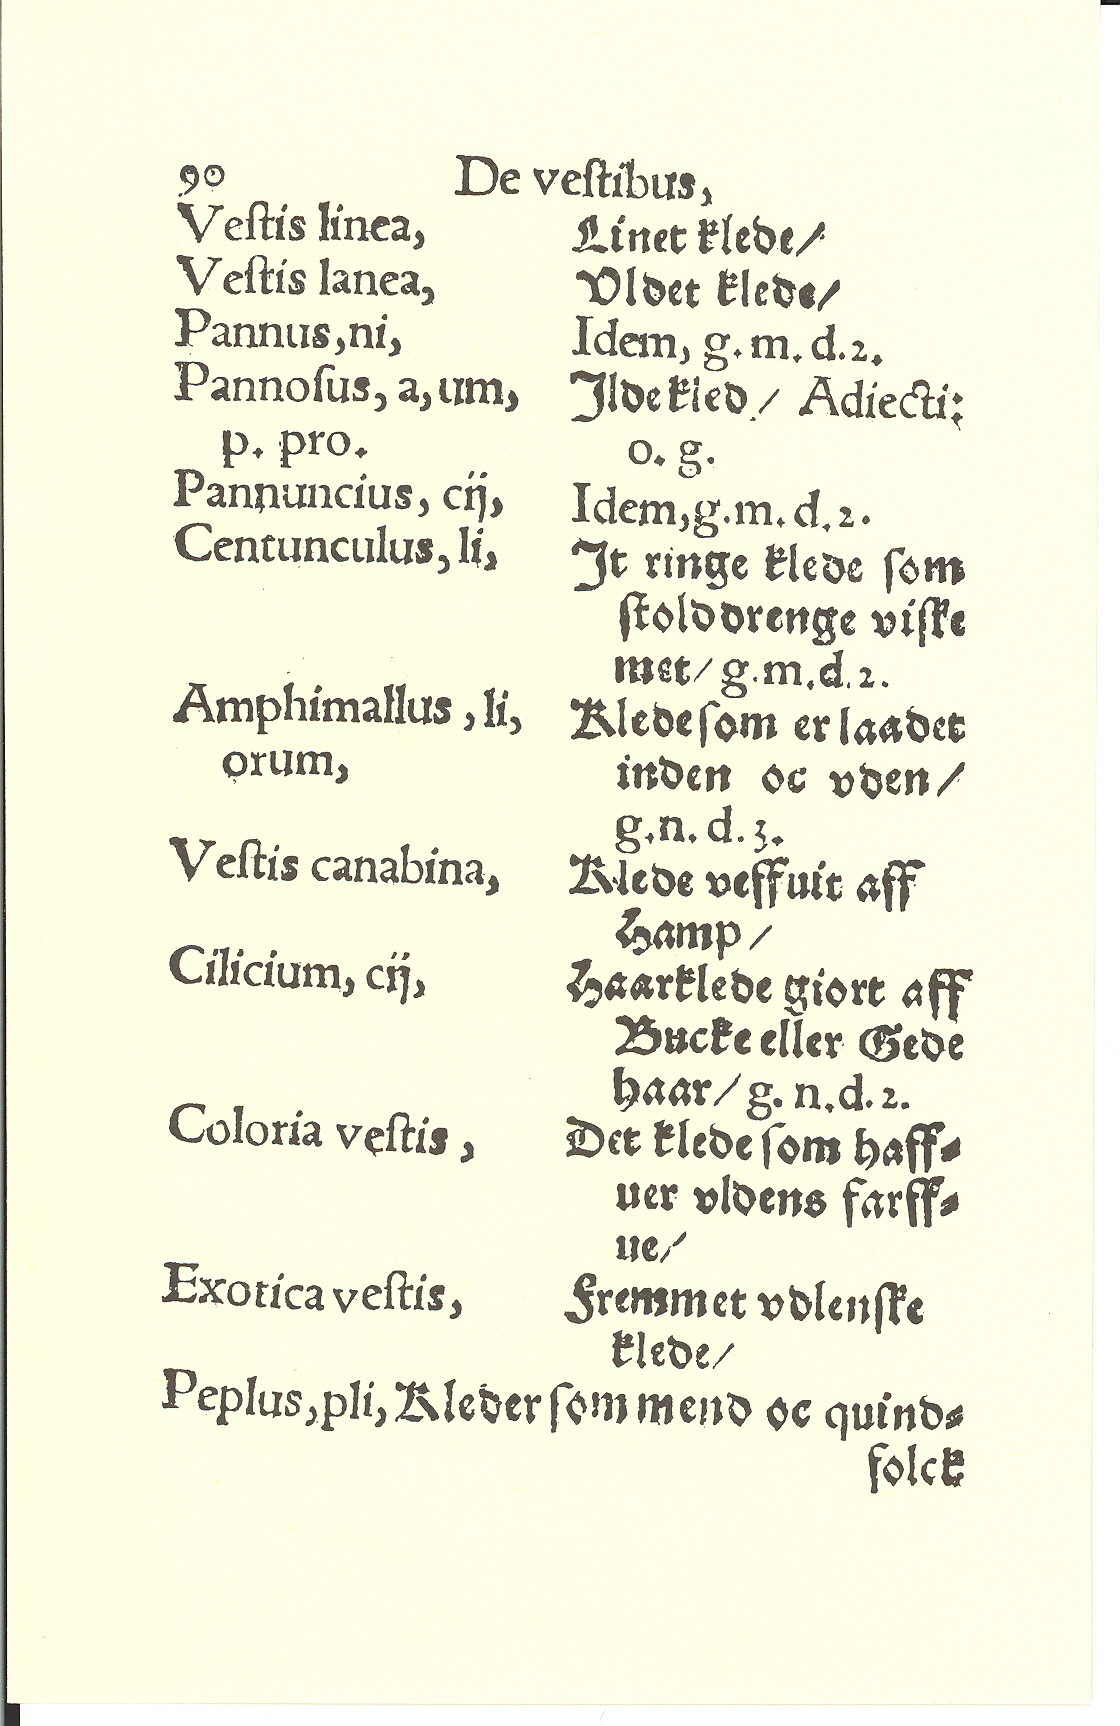 90 De veſtibus,
Veſtis linea, Linet klede/
Veſtis lanea, Vldet klede/
Pannus,ni, Idem, g. m. d. 2.
Pannoſus, a, um, Ilde kled / Adiecti:
p. pro. o. g.
Pannuncius, cij, Idem,g.m. d. 2.
Centunculus, li, It ringe klede ſom
ſtolddrenge viſke
met/ g.m.d.2.
Amphimallus, li, Klede ſom er laadet
orum, inden oc vden/
g.n. d. 3.
Veſtis canabina, Klede veffuit aff
Hamp/
Cilicium, cij, Haarklede giort aff
Bucke eller Gede
haar/ g. n.d. 2.
Coloria veſtis, Det klede ſom haff⸗
uer vldens farff⸗
ue/
Exotica veſtis, Fremmet vdlenſke
klede/
Peplus,pli, Kleder ſom mend oc quind⸗
folck